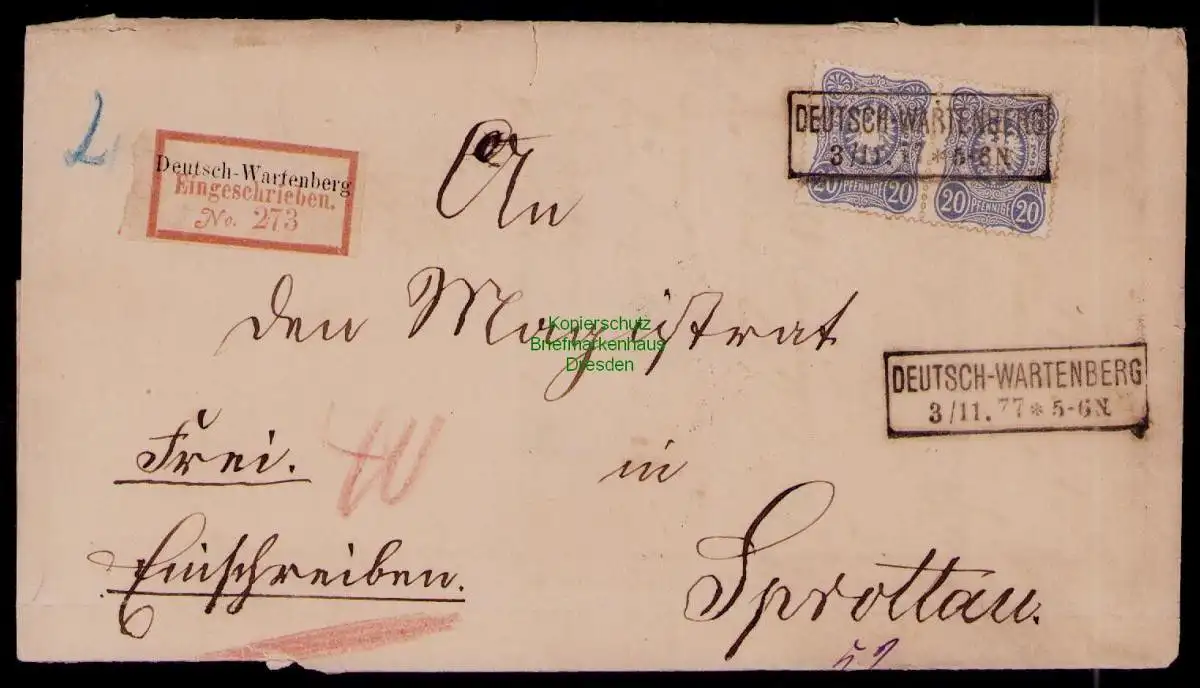 DEUTSCH-WARTENBERG
3/11.77*5-6N
20 PFENNIGE 20
20 PFENNIGE 20
Deutsch-Wartenberg
Eingeschrieben.
No. 273
An
den Magistrat
Kopierschutz
Briefmarkenhaus
Dresden
DEUTSCH-WARTENBERG
3/11.77*5-6N
Frei.
40
in
Einschreiben.
Sprottau.
52